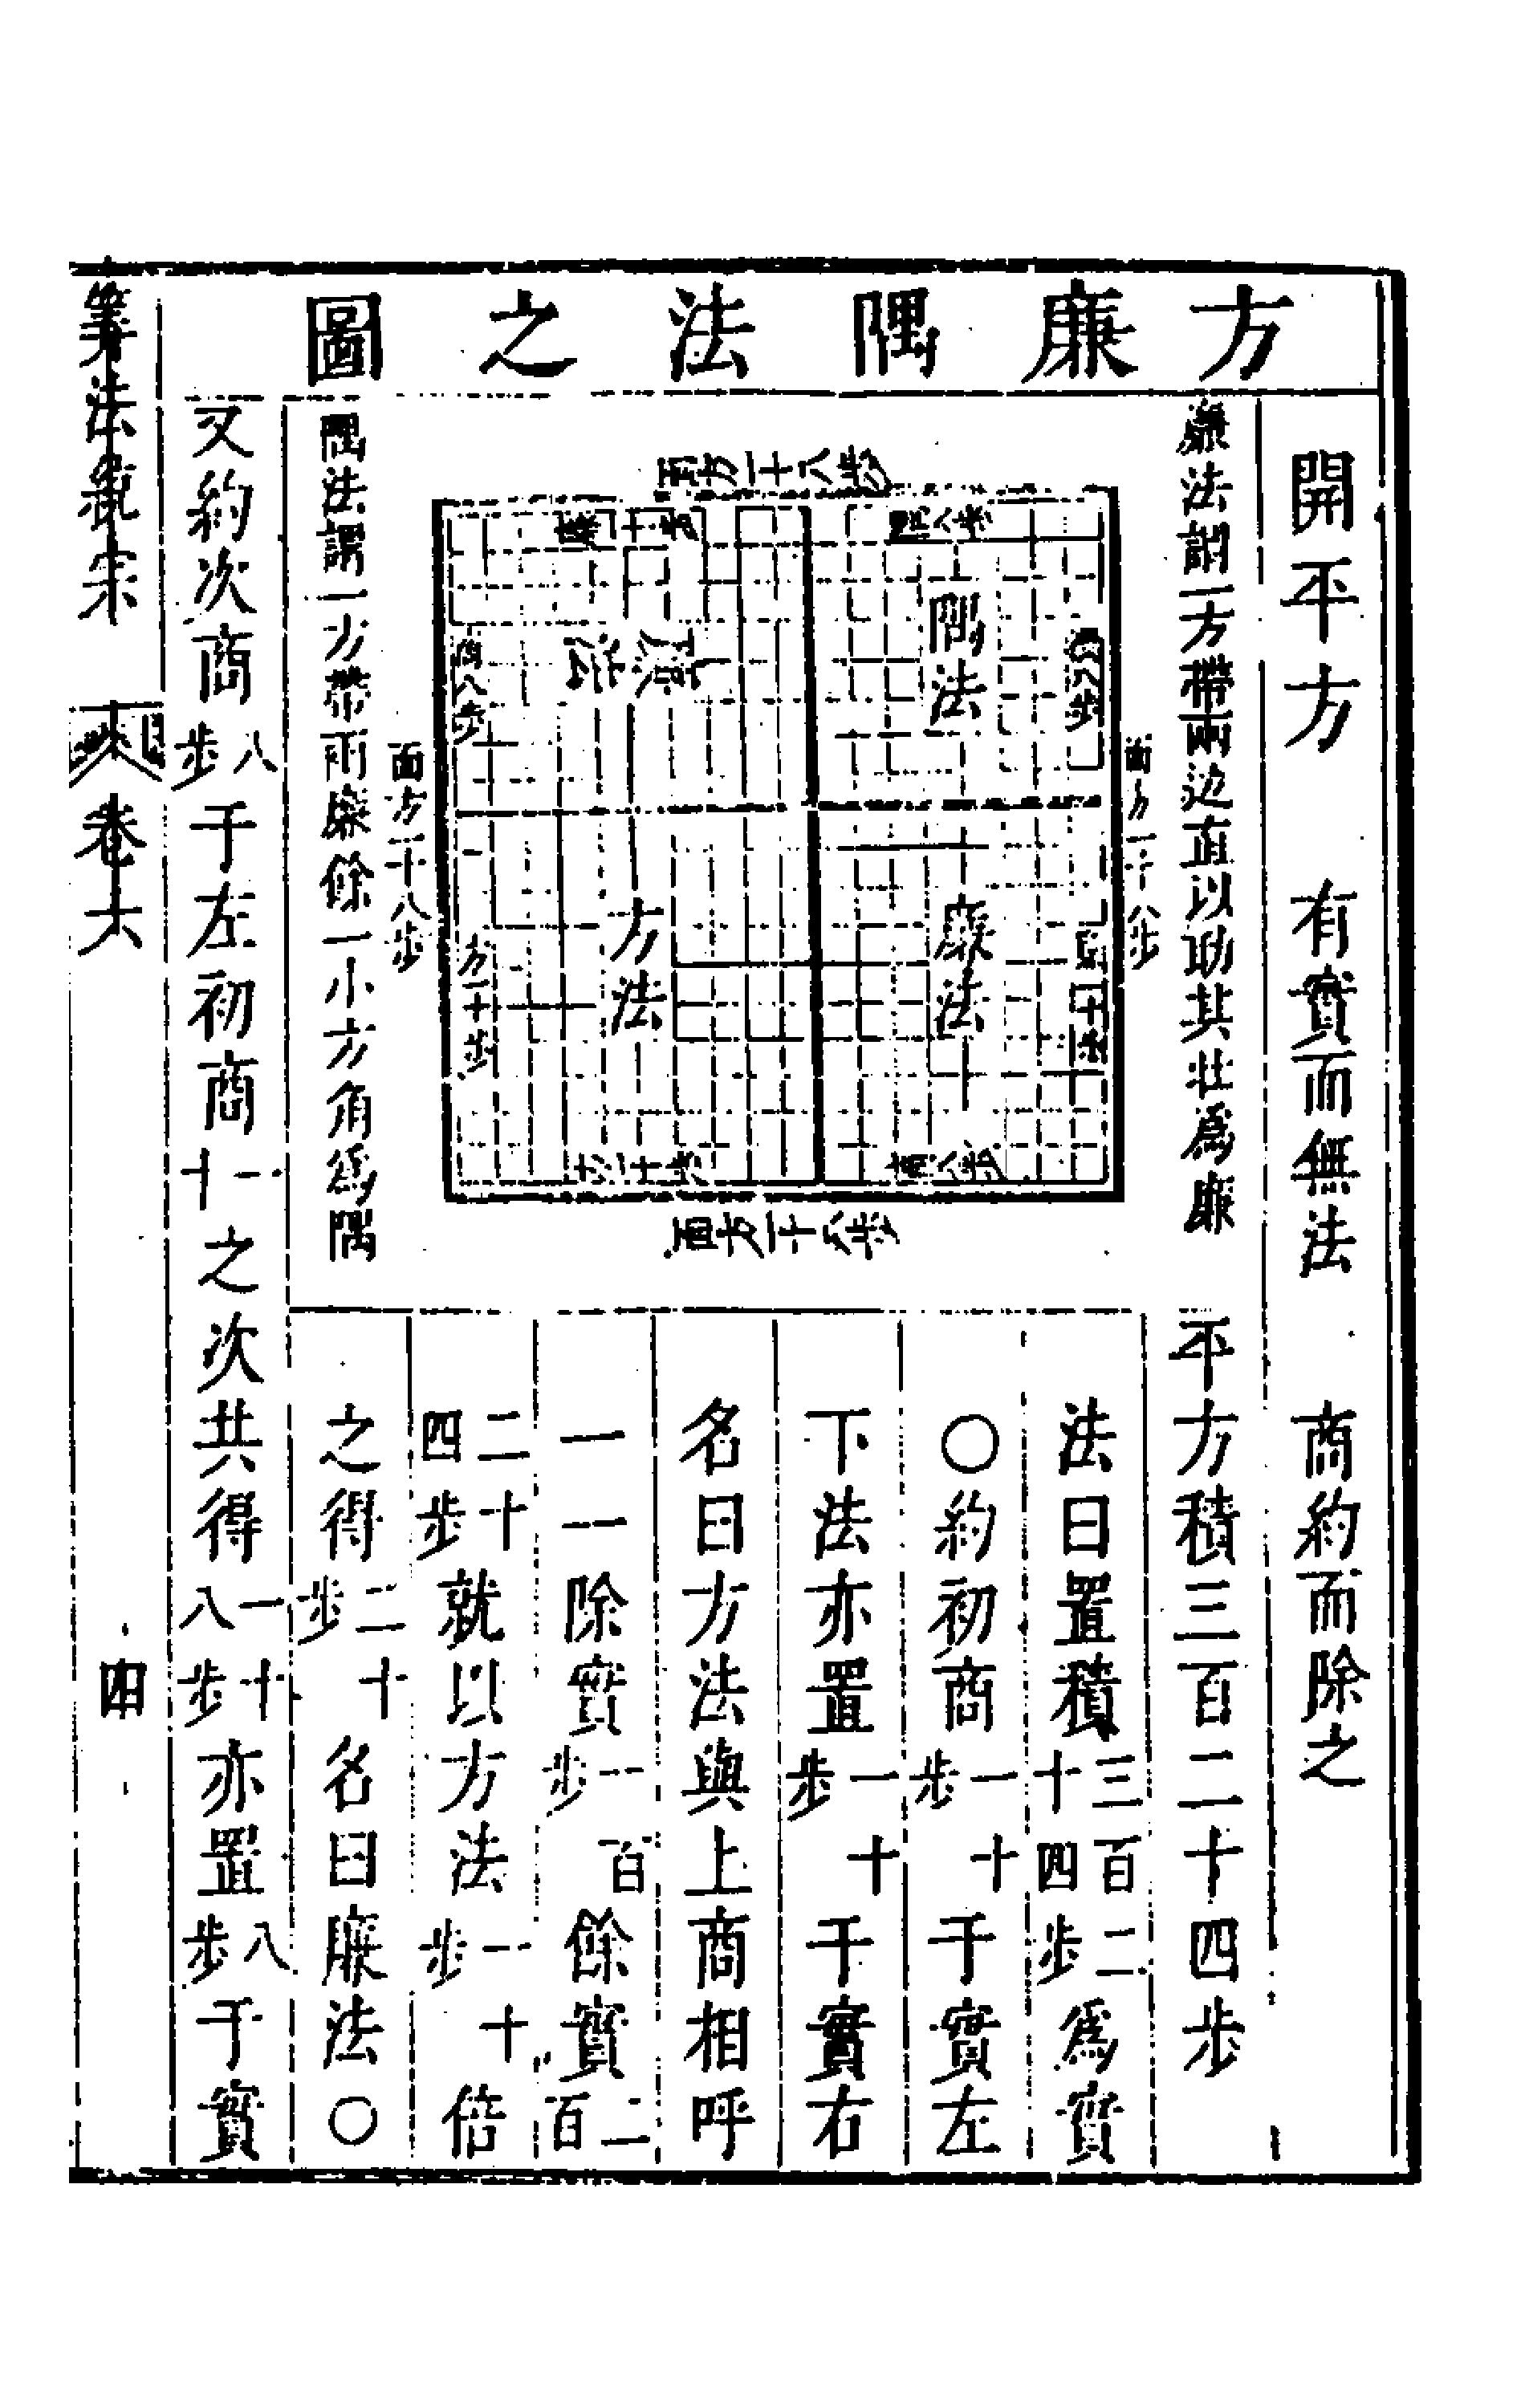 方廉隅法之圖
開平方 有實而無法 商約而除之
廉法謂一方帶兩边直以助其壮爲廉
面方一十八步
面方一十八步
隅法
廉法
廉法
方法
方一十步
面方一十八步
面方一十八步
隅法謂一方帶兩廉餘一小方角爲隅
平方積三百二十四步
法曰置積三百二十四步爲實
〇約初商一十步于實左
下法亦置一十步于實右
名曰方法與上商相呼
一一除實一百步餘實二百
二十四步就以方法一十步倍
之得二十步名曰廉法〇
又約次商八步于左初商一十之次共得一十八步亦置八步于實
筭法統宗 卷六 四